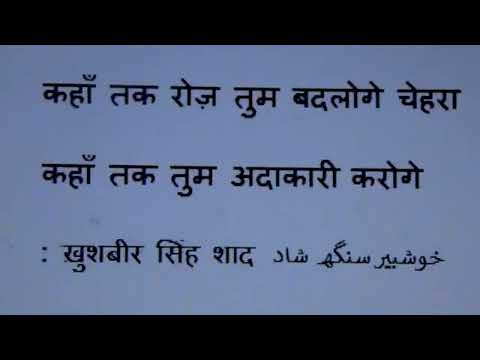 कहाँ तक रोज़ तुम बदलोगे चेहरा
कहाँ तक तुम अदाकारी करोगे
: ख़ुशबीर सिंह शाद خوشبیر سنگھ شاد